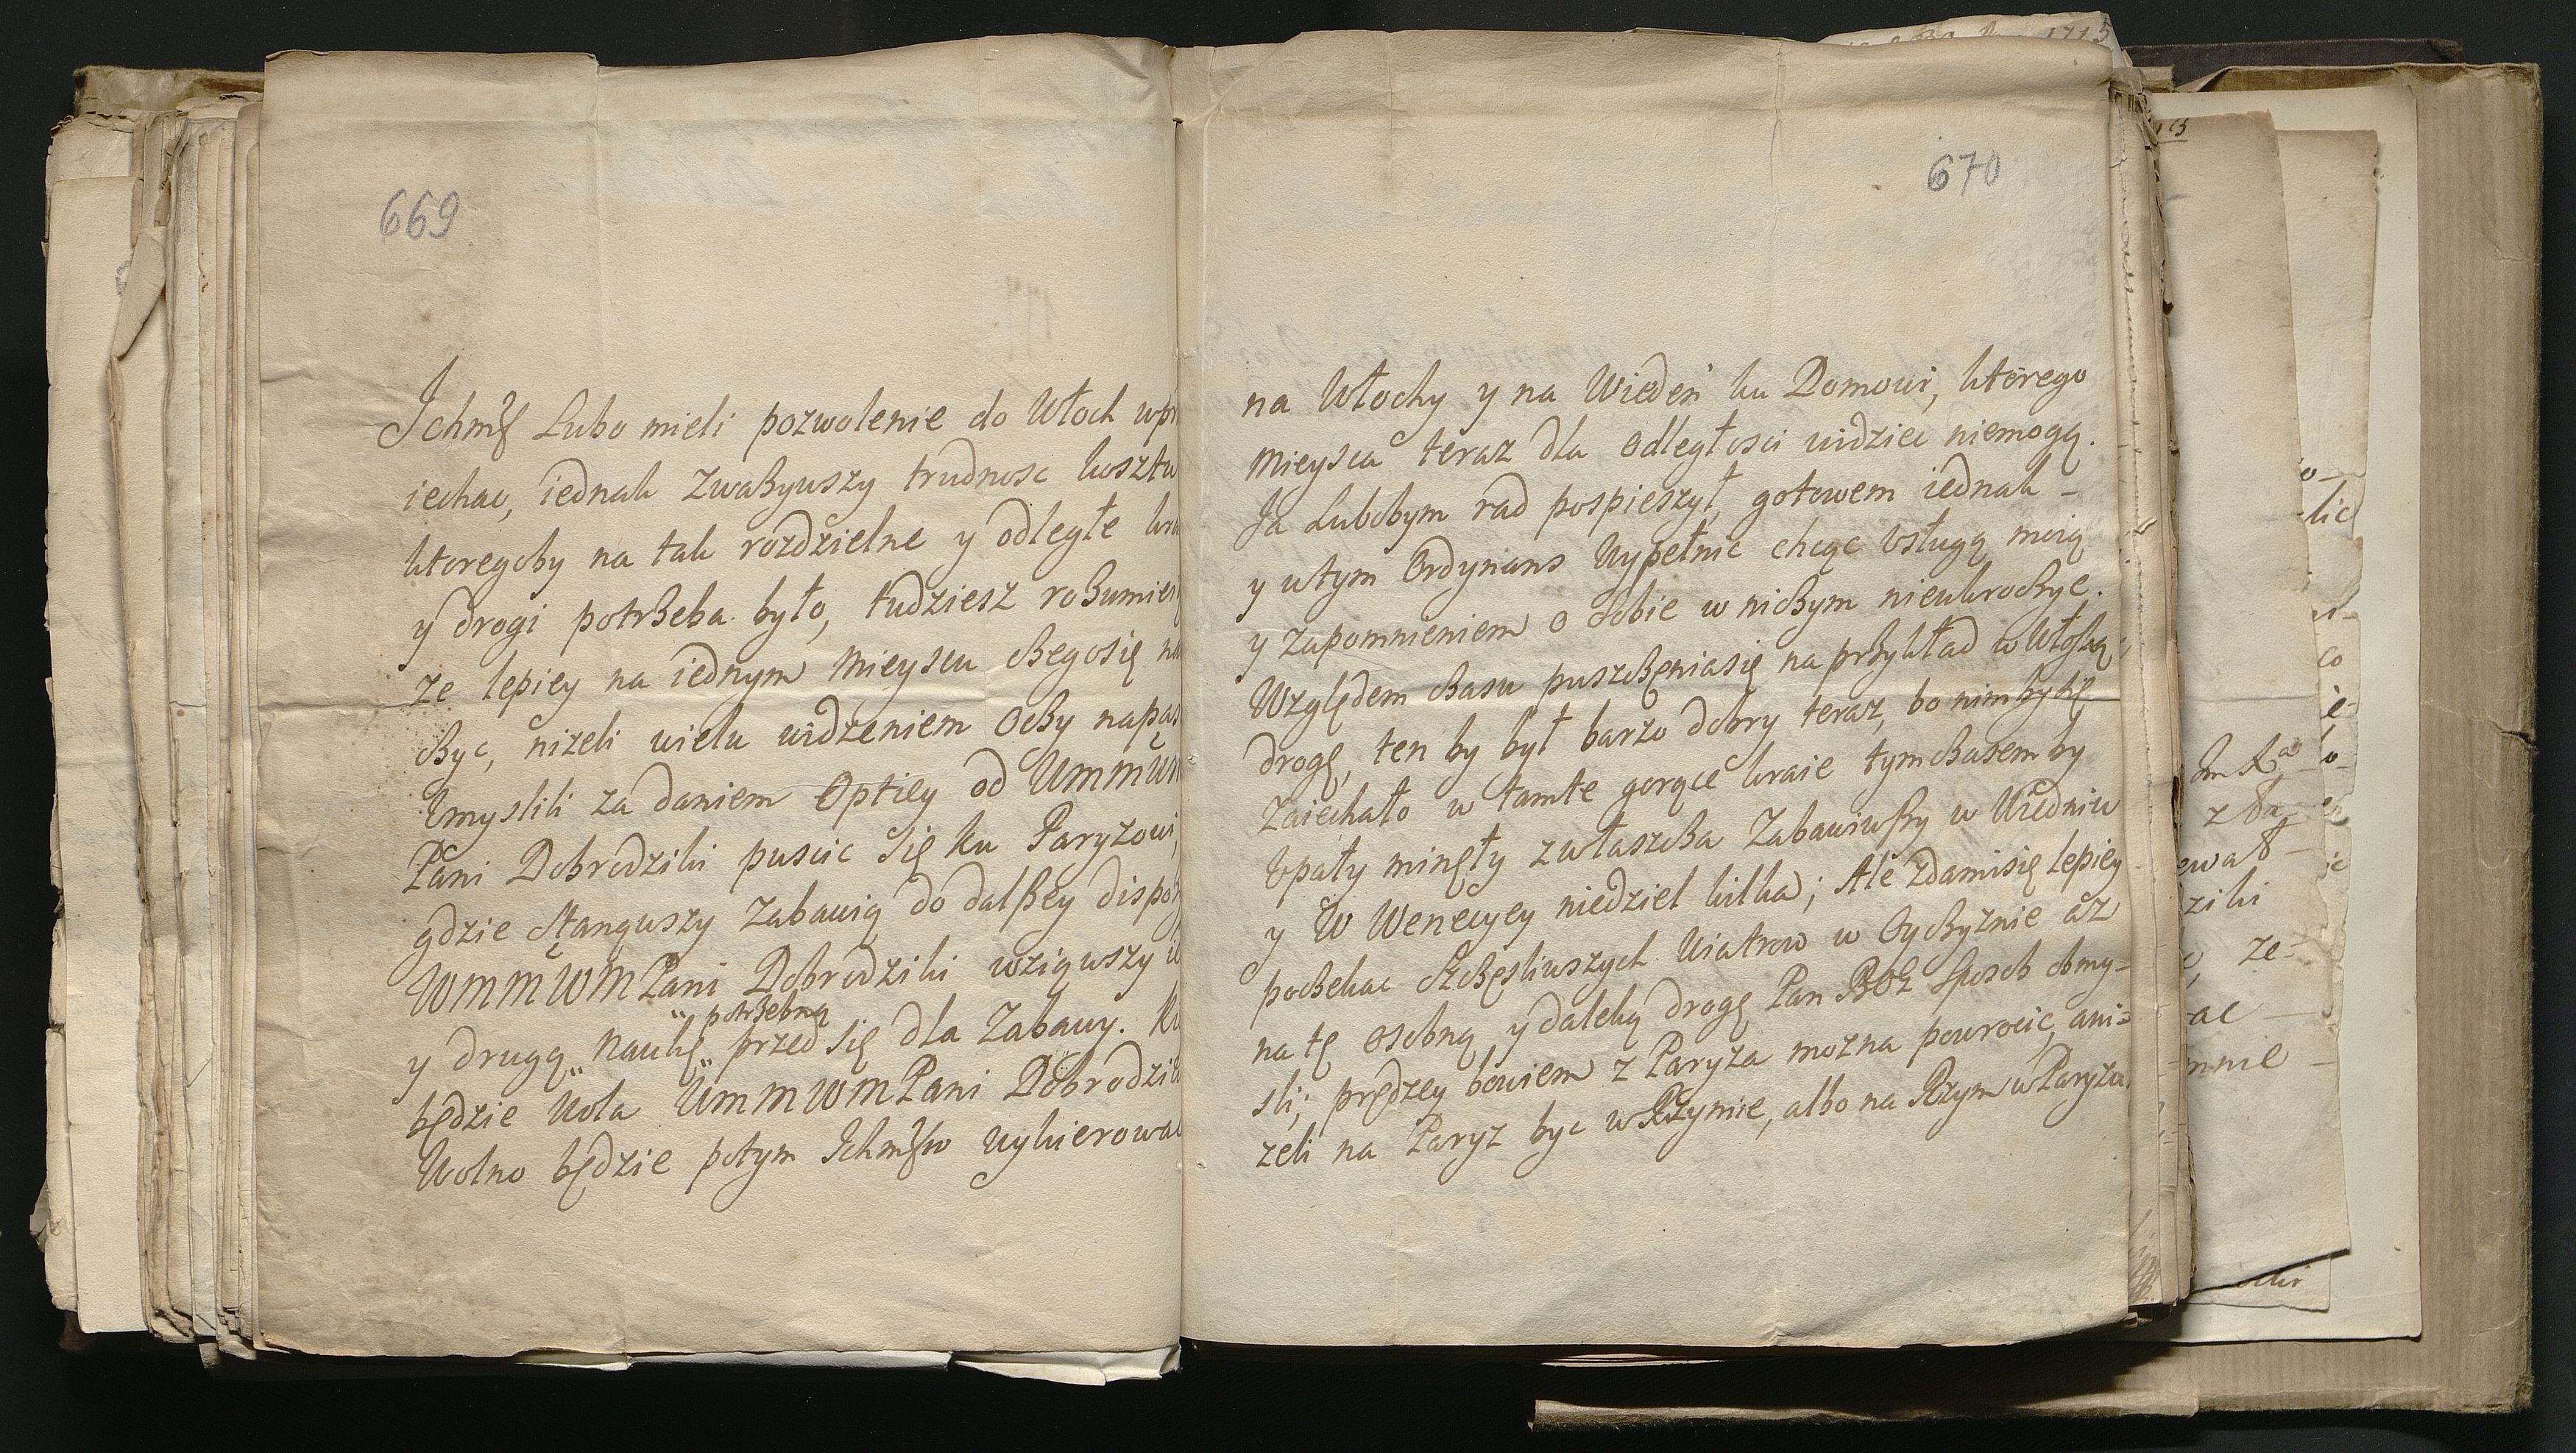 669
Ichmść Lubo mieli pozwolenie do Włoch wpr
iechac, iednak zwazywszy trudnosc kosztu
ktoregoby na tak rozdzielne y odległe kra
y drogi potrzeba było, tudziesz rozumieią
ze lepiey na iednym mieyscu czegosię na
czyc, nizeli wielu widzeniem oczy napas
Umyslili za daniem Optiey od WMMWM
Pani Dobrodziki puscic się ku Paryzowi,
gdzie stanąwszy zabawią do dalszey dispoz
WMMWMPani Dobrodziki wziąwszy ie
potrzebną
y drugą naukę przed się dla zabawy.
będzie wola WMMWMPani Dobrodzik
Wolno będzie potym Ichmść wykierowac
670
na Włochy y na Wiedeń ku Domowi, ktorego
mieysca teraz dla odległosci widziec niemogą.
Ja Lubobym rad pospieszył, gotowem iednak -
y wtym Ordynans wypełnic chcąc Usługą moią
y zapomnieniem o sobie w niczym nieukroczyc.
Względem czasu puszczęniasię na przykład w Włoską
drogę, ten by był barzo dobry teraz, bo nimbysię
zaiechało w tamte gorące kraie tymczasem by
Upały minęły zwłaszcza zabawiwszy w Wiedniu
y W Wenecyey niedziel kilka; Ale zdamisię lepiey
poczekac szczęsliwszych wiatrow w Oyczyznie az
na tę osobną y daleką drogę Pan BOZ sposob obmy-
sli; prędzey bowiem z Paryza mozna powrocic, ani=
zeli na Paryz byc w Rzymie, albo na Rzym w Paryzu